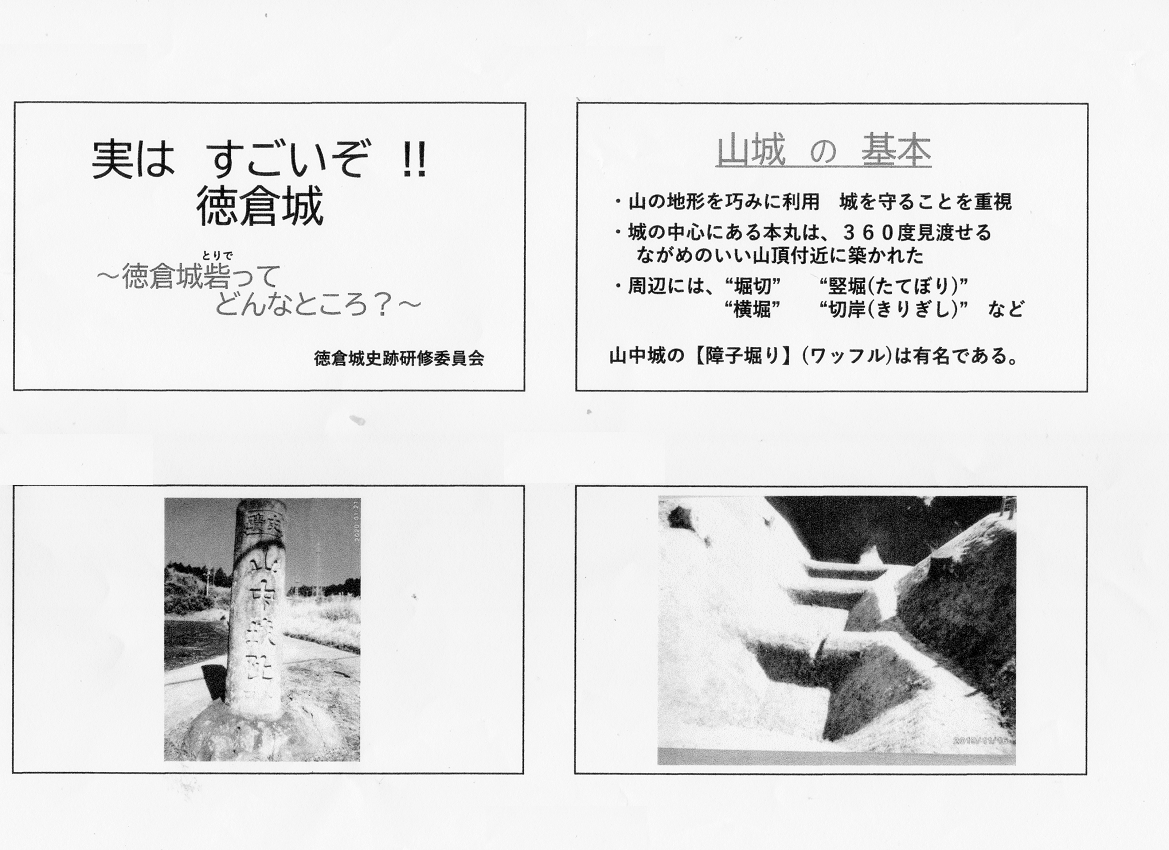 実は すごいぞ !!
徳倉城
とりで
～徳倉城砦って
どんなところ？～
徳倉城史跡研修委員会
山城 の 基本
・山の地形を巧みに利用 城を守ることを重視
・城の中心にある本丸は、３６０度見渡せる
ながめのいい山頂付近に築かれた
・周辺には、“堀切” “竪堀(たてぼり)”
“横堀” “切岸(きりぎし)” など
山中城の【障子堀り】(ワッフル)は有名である。
山中城跡